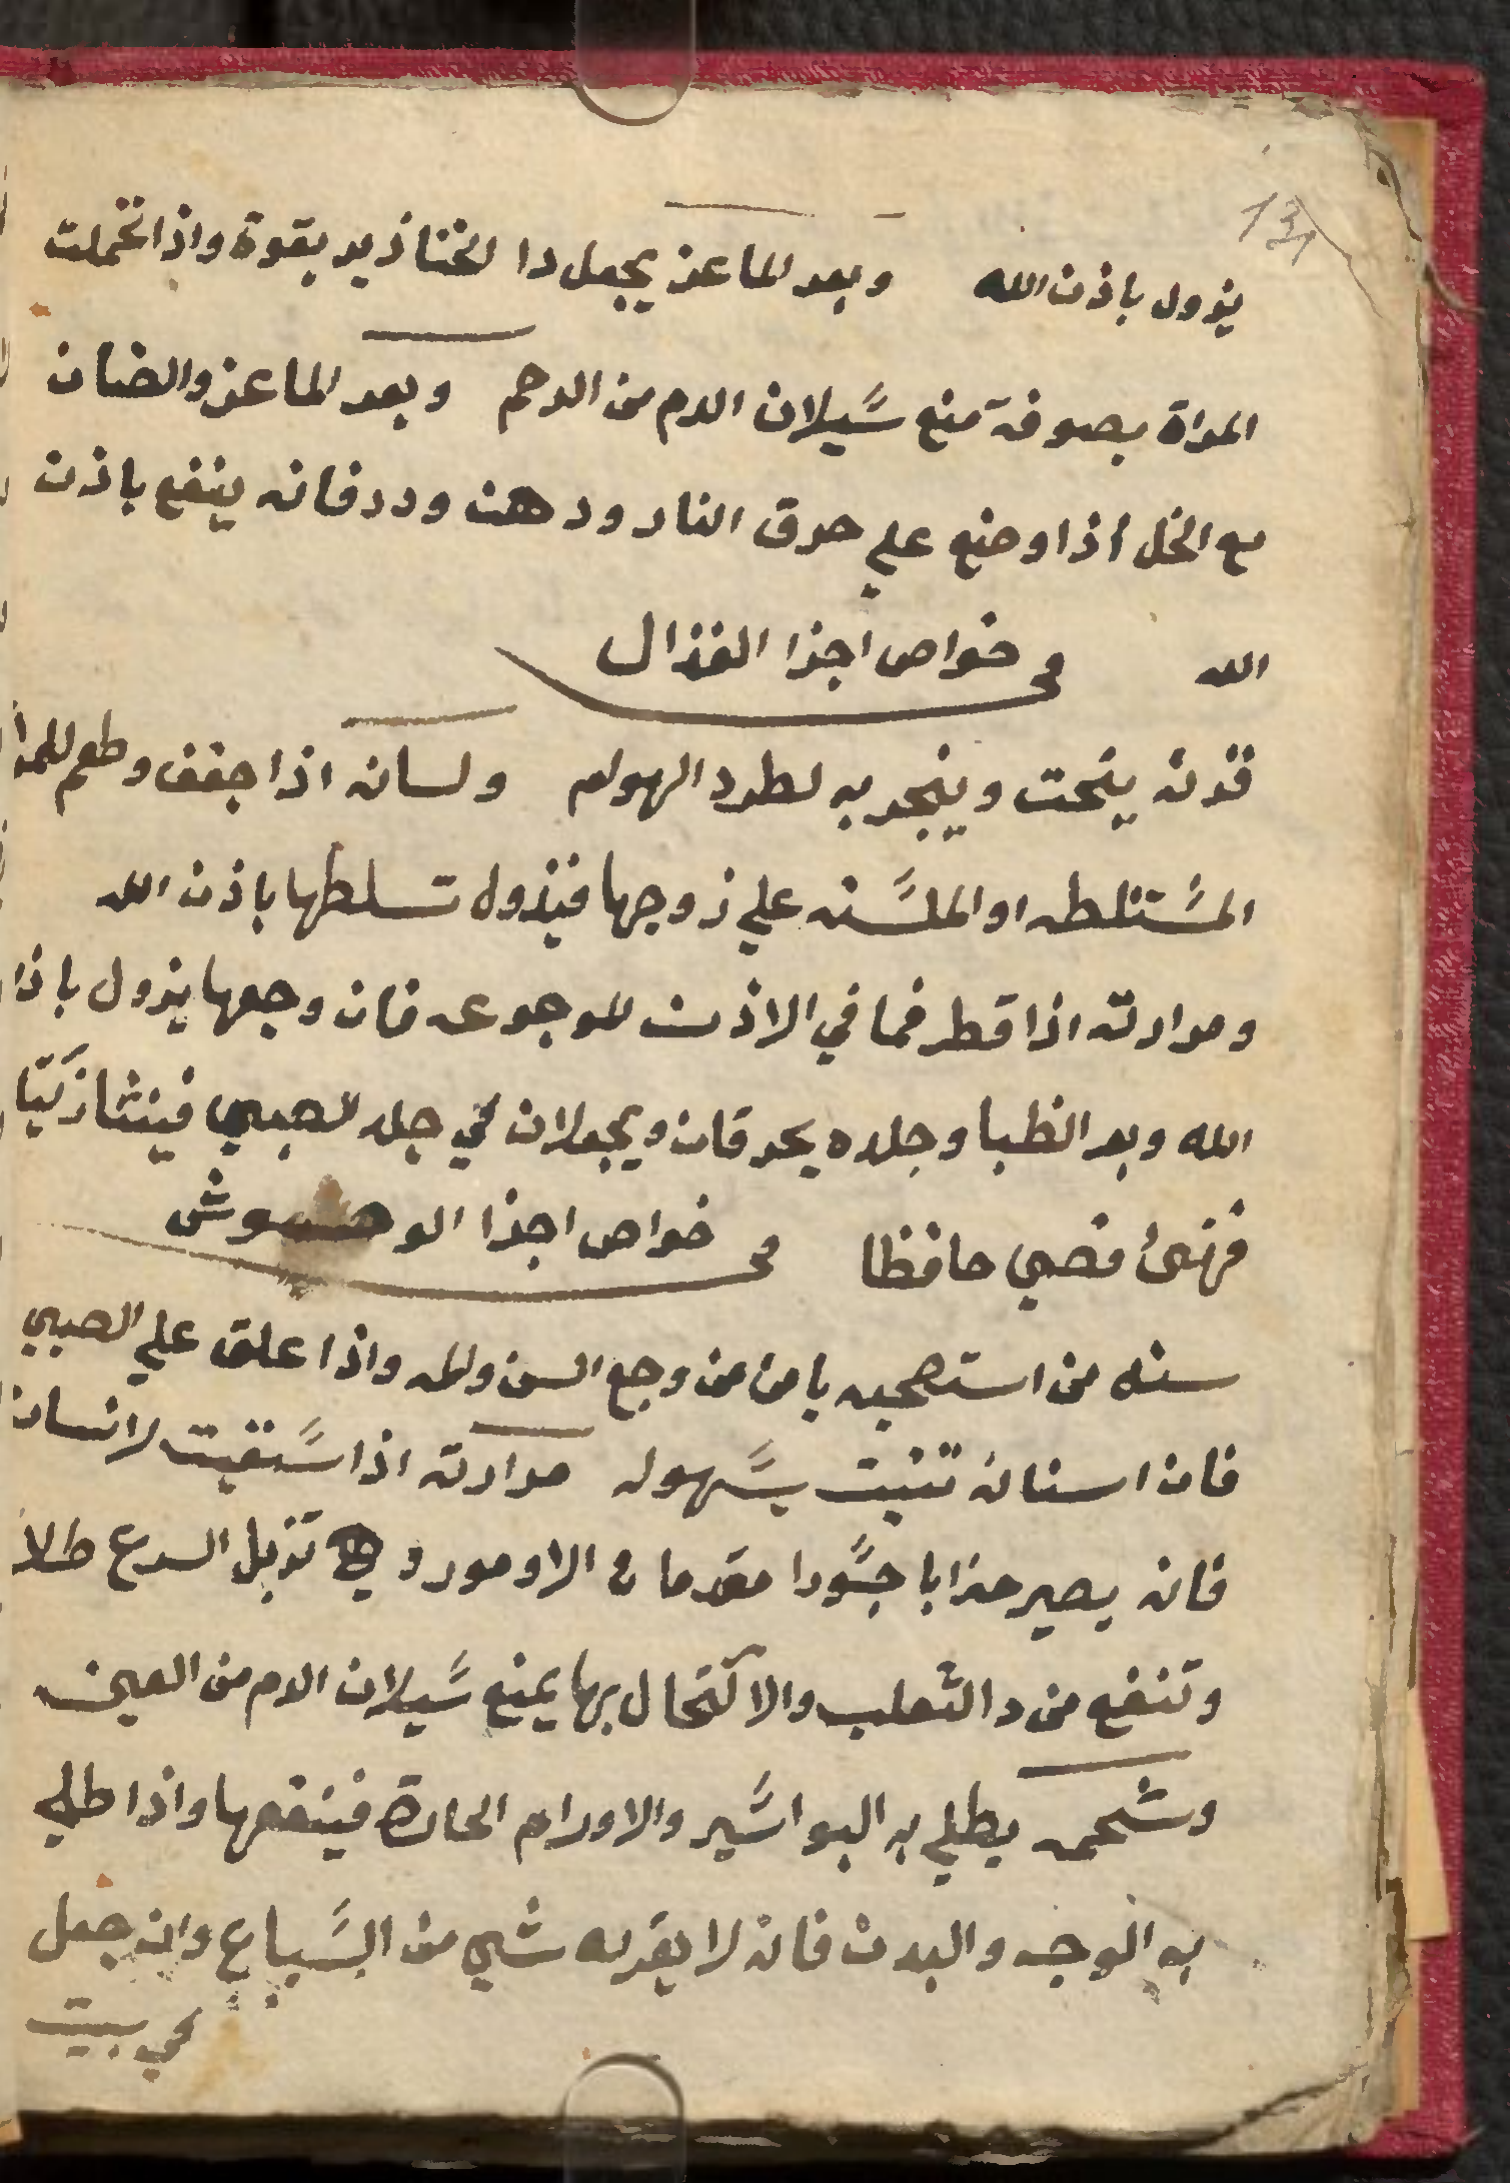 131
يزول باذن الله وبعر الماعز يجعل دا الخنازير بقوة واذا تحملت
المراة بصوفة منع سيلان الدم من الرحم وبعر الماعز والضان
مع الخل اذا وضع علي حرق النار ودهن ورد فانه ينفع باذن
الله في خواص اجزا الغزال
قرنه ينحت ويبخر به لطرد الهوام ولسانه اذا جفف وطعم للمرا
المستلطه او الملسنه علي زوجها فيزول تسلطها باذن الله
ومرارته اذا قطر فما في الاذن الموجوعه فان وجعها يزول باذن
الله وبعر الظبا وجلده يحرقان ويجعلان في جلد الصبي فينشا زكيا
فهئ فصي حافظا في خواص اجزا الوحوش
سنه من استصحبه يامن من وجع السن واذا علق علي الصبي
فان اسنانه تنبت بسهوله مرارته اذا سقيت لانسان
فانه يصير جسورا مقدما في الاومور وهي تزيل السرع طلا
وتنفع من دا الثعلب والاكتحال بها يمنع سيلان الدم من العين
وشحمه يطلي به البواسير والاورام الحارة فينفعها واذا طلي
به الوجه والبدن فانه لا يقربه شي من السباع وان جعل
في بيت